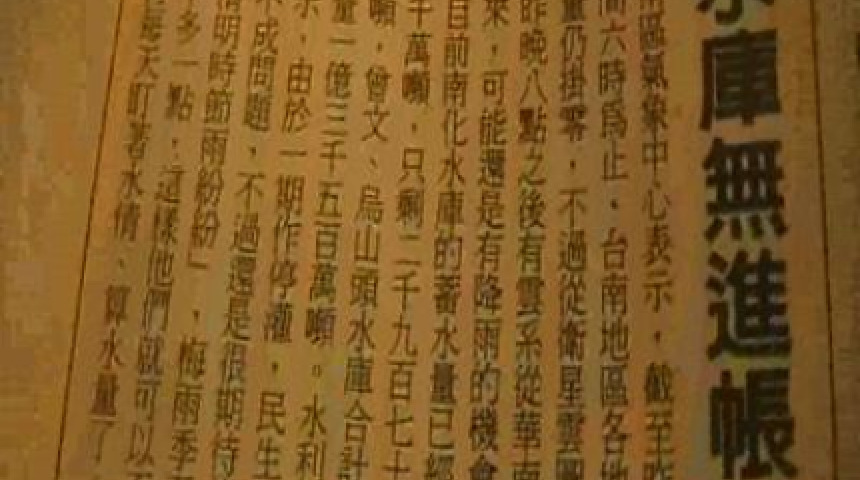 水庫無進帳
南區氣象中心表示，截至昨
間六時為止、台南地區各地
量仍掛零，不過從衛星雲圖
昨晚八點之後有雲系從華南
來，可能還是有降雨的機會
目前南化水庫的蓄水量已經
千萬噸，只剩二千九百七十
噸，曾文、烏山頭水庫合計
量一億三千五百萬噸。水利
示，由於一期作停灌，民生
不成問題，不過還是很期待
清明時節雨紛紛」，梅雨季
多一點，這樣他們就可以
每天盯著水情、算水量了